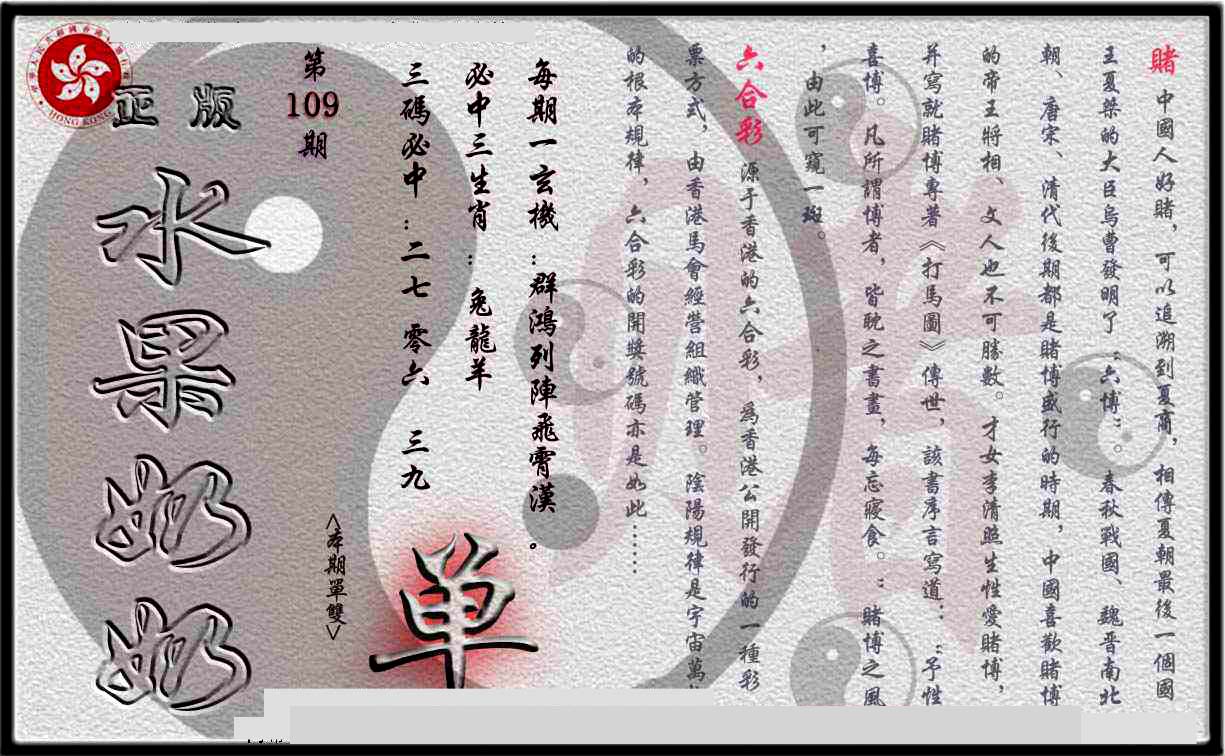 賭 中國人好賭，可以追溯到夏商，相傳夏朝最後一個國
王夏桀的大臣烏曹發明了“六博”。春秋戰國、魏晋南北
朝、唐宋、清代後期都是賭博盛行的時期，中國喜歡賭博
的帝王將相、文人也不可勝數。才女李清照生性愛賭博，
并寫就賭博專著《打馬圖》傳世，該書序言寫道：“予性
喜博。凡所謂博者，皆耽之書畫，每忘寢食。”賭博之風
，由此可窺一斑。
六合彩 源于香港的六合彩，為香港公開發行的一種彩
票方式，由香港馬會經營組織管理。陰陽規律是宇宙萬
的根本規律，六合彩的開獎號碼亦是如此……
每期一玄機：群鴻列陣飛霄漢。
必中三生肖：兔龍羊
三碼必中：二七 零六 三九
<本期單雙>
单
第
109
期
正版
水果奶奶
HONG KONG